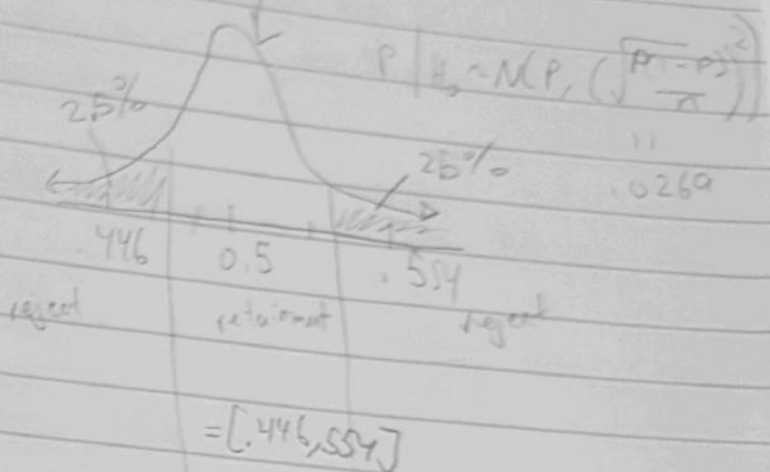 P | H₀ ~ N(P, (√P(1-P)/n)²)
2.5%
25%
"
.0269
.446 0.5 .554
reject retainment reject
=[.446,.554]